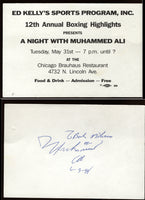 ED KELLY'S SPORTS PROGRAM, INC.
12th Annual Boxing Highlights
PRESENTS
A NIGHT WITH MUHAMMED ALI
Tuesday, May 31st — 7 p.m. until ?
AT the
Chicago Brauhaus Restaurant
4732 N. Lincoln Ave.
Food & Drink — Admission — Free
Muhammad
Ali